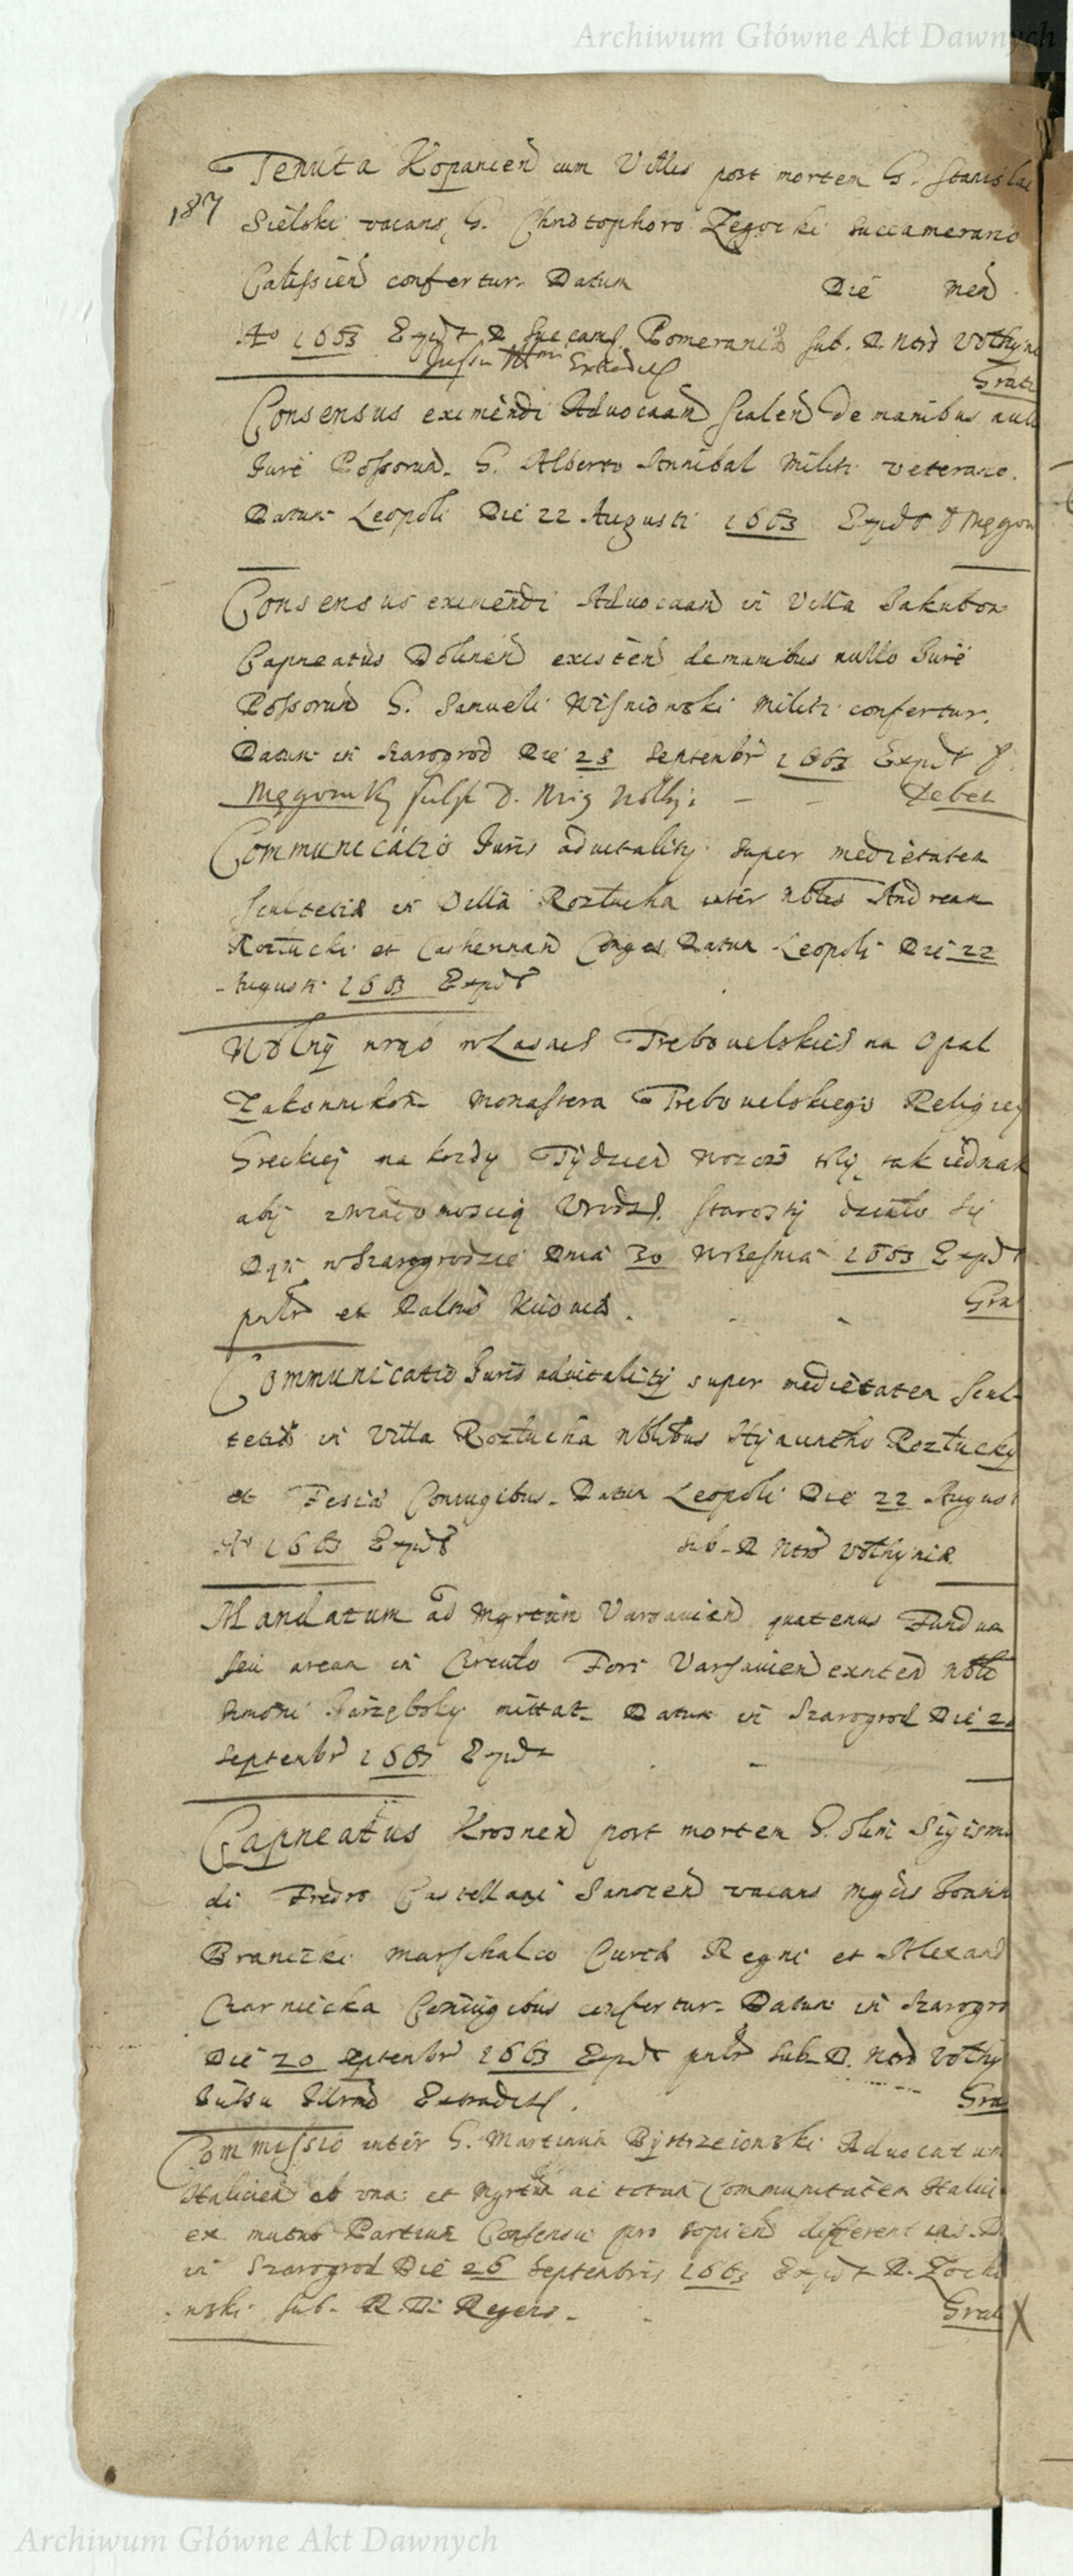 Archiwum Główne Akt Dawnych
Tenuta Kopanien cum Villis post mortem G. Stanislai
187
Sielski vacans G. Christophoro Zegocki Succamerario
Calissien confertur. Datum Die Men
Ao 1663 Expdt R Pomeraniæ sub. R. Ntrd Volhyniæ
Jussu Extradit
Grat
Consensus eximendi Advocaan Scalen de manibus nullo
Jure Possorum. G. Alberto Annibal Militi veterano.
Datum Leopoli Die 22 Augusti 1663 Expdt
Consensus eximendi Advocaan in Villa Jakubow
Capneatus Dolinen existen de manibus nullo Jure
Possorum G. Samueli Wisniowski Militi confertur.
Datum in Szarogrod Die 28 Septembr 1663 Expdt
Debet
Communicatio Juris advitalitij super medietatem
Scultetiæ in Villa Roztucka inter Nbles Andream
Roztucki et Conges Datum Leopoli Die 22
Augusti 1663 Expdt
Wolny wrąb w Lasach Trebowelskich na Opal
Zakonnikow Monastera Trebowelskiego Religiey
Greckiej na kozdy Tydzien tak iednak
abij z wiadomoscią Urodz. Starosty działo się
Dan w Szarogrodzie Dnia 30 Wrzesnia 1663 Expdt
Gra
Communicatio Juris advitalitij super medietatem Scul-
tetiæ in Villa Roztucka Nblibus Hyacintho Roztucky
et Fesiæ Coniugibus. Datum Leopoli Die 22 August
Ao 1663 Expdt sub. R Ntrd Volhyniæ
Mandatum ad Mgrtum Varsavien quatenus Fundum
seu aream in Circulo Fori Varsavien exnten Nble
Simoni mittat. Datum in Szarogrod Die
Septembr 1663 Expdt
Capneatus Krosnen post mortem G. olim Sigismu
di Fredro Castellani Sanocen vacans Mgcis Joann
Braniczki Marschalco Curiæ Regni et Alexand
Czarniecka Coniugibus confertur. Datum in Szarogro
Die 20 Septembr 1663 Expdt pntr Sub. R. Ntrd Volhy
Jussu Extradit.
Gra
Commissio inter G. Martinum Bystrzeionski Advocatum
Halicien ab una et Mgrtum ac totam Communitatem Halici
ex mutuo Partium Consensu pro sopien differentias. D.
in Szarogrod Die 26 Septembris 1663 Expdt R.
nski Sub. R. D. Regers.
Grat X
Archiwum Główne Akt Dawnych